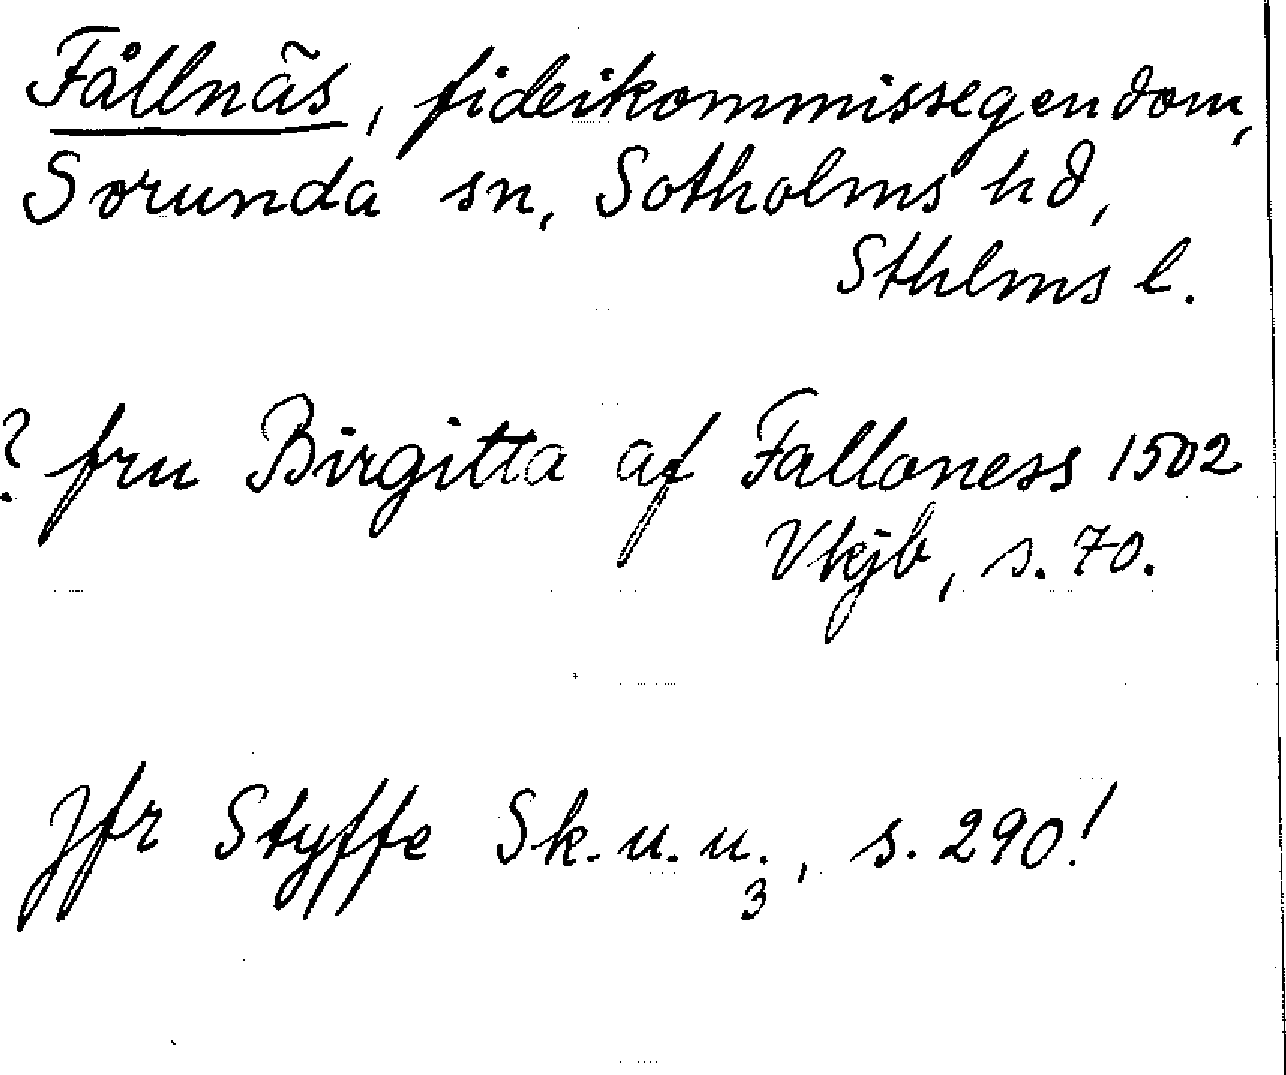 Fållnäs, fideikommissegendom,
Sorunda sn, Sotholms hd,
Sthlms l.
? fru Birgitta af Falloness 1502
Vkjb, s. 70.
Jfr Styffe Sk. u. u.3, s. 290!